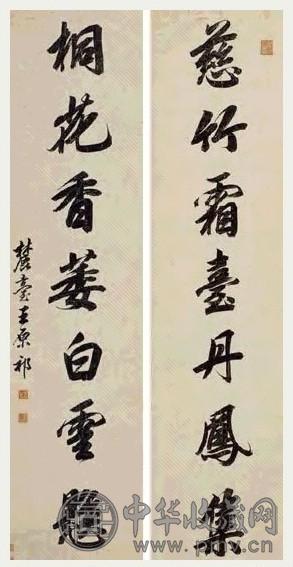 慈竹霜臺丹鳳集
桐花香萎白雲懸
麓臺王原祁
中华收藏网